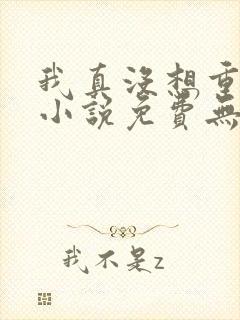 我真沒想重
小說免費無
我不是z